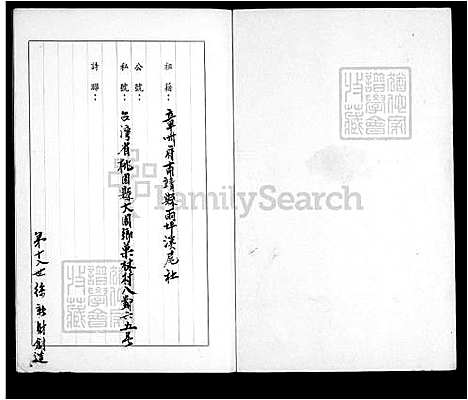 祖籍：漳州府南靖縣兩坪溪尾社
公號：
私號：台灣省桃園縣大園鄉菓林村八鄰六五号
詩聯：
第十八世徐新財創造
FamilySearch
譜學會
藏
譜學會
藏